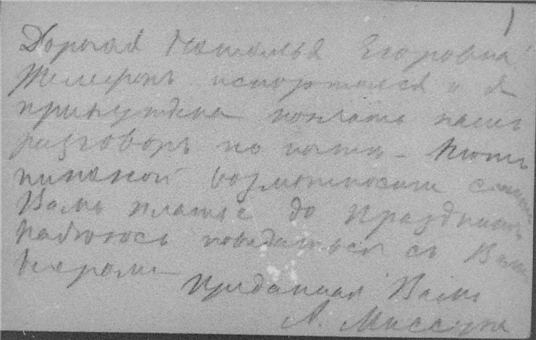 1
Дорогая Наталья Егоровна!
Телефонъ испортился и я
принуждена послать нашъ
разговоръ по почтѣ – Нѣтъ
никакой возможности сшить
Вамъ платье до праздниковъ
Надѣюсь повидаться съ Вами
вскорѣ
Преданная Вамъ
А. Миссуна